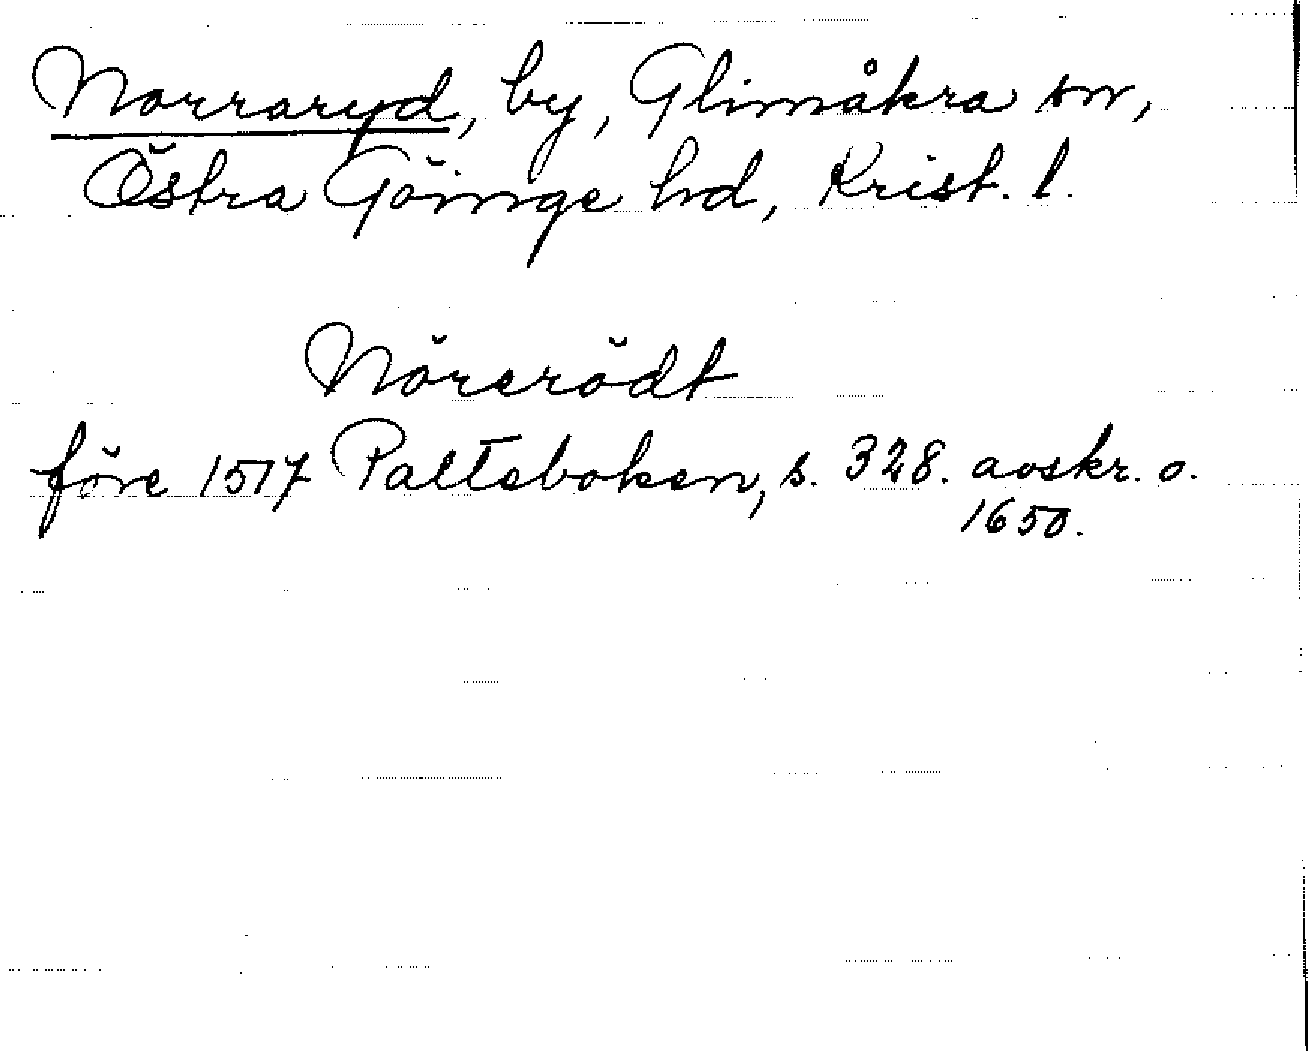 Norraryd, by, Glimåkra sn,
Östra Göinge hd, Krist. l.
Nörerödt
före 1517 Palteboken, s. 328. avskr. o.
1650.